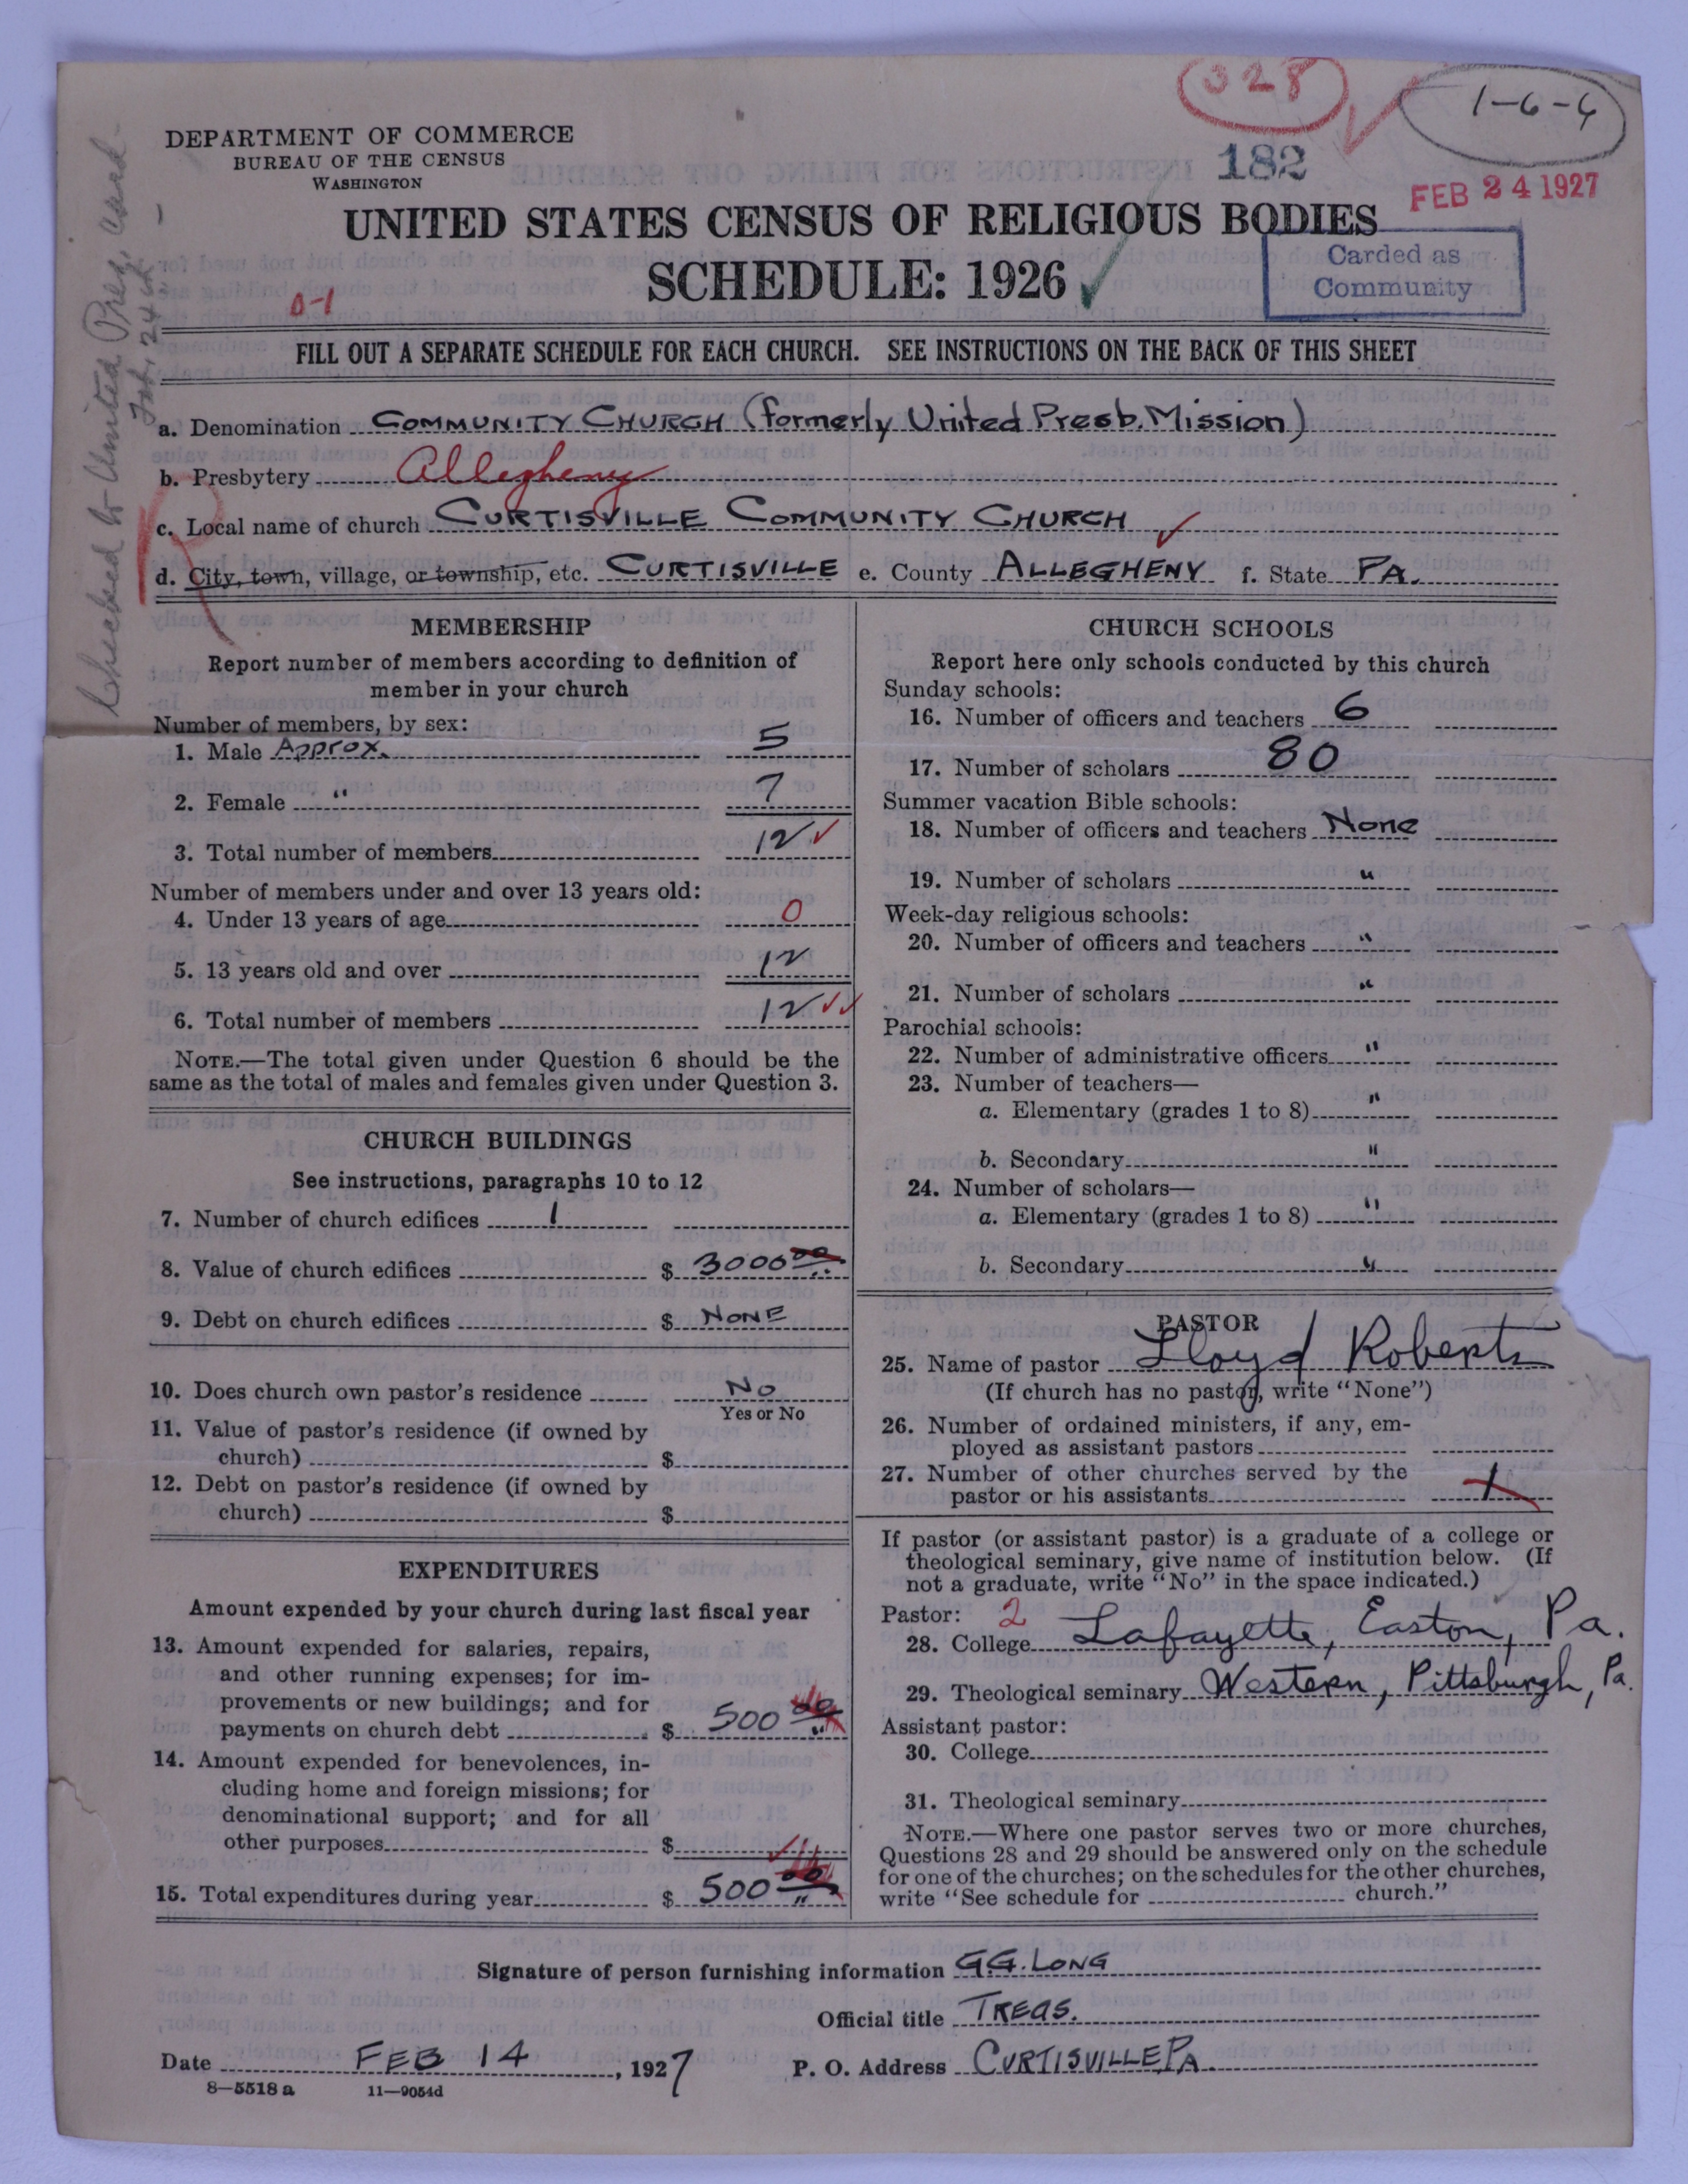 328
1-6-4
182
FEB 24 1927
DEPARTMENT OF COMMERCE
BUREAU OF THE CENSUS
WASHINGTON
UNITED STATES CENSUS OF RELIGIOUS BODIES
SCHEDULE: 1926
Carded as
Community
0-1
Checked to United Pres, Card-
FILL OUT A SEPARATE SCHEDULE FOR EACH CHURCH. SEE INSTRUCTIONS ON THE BACK OF THIS SHEET
a. Denomination COMMUNITY CHURCH (formerly United Presb. Mission)
b. Presbytery Allegheny
c. Local name of church CURTISVILLE COMMUNITY CHURCH
d. City, town, village, or township, etc. CURTISVILLE e. County ALLEGHENY f. State PA.
MEMBERSHIP
Report number of members according to definition of
member in your church
Number of members, by sex:
1. Male Approx. 5
2. Female " 7
3. Total number of members 12
Number of members under and over 13 years old:
4. Under 13 years of age 0
5. 13 years old and over 12
6. Total number of members 12
NOTE.—The total given under Question 6 should be the
same as the total of males and females given under Question 3.
CHURCH BUILDINGS
See instructions, paragraphs 10 to 12
7. Number of church edifices 1
8. Value of church edifices $ 3000 00
9. Debt on church edifices $ NONE
10. Does church own pastor's residence No
Yes or No
11. Value of pastor's residence (if owned by
church) $
12. Debt on pastor's residence (if owned by
church) $
EXPENDITURES
Amount expended by your church during last fiscal year
13. Amount expended for salaries, repairs,
and other running expenses; for im-
provements or new buildings; and for
payments on church debt $ 500 00
14. Amount expended for benevolences, in-
cluding home and foreign missions; for
denominational support; and for all
other purposes $
15. Total expenditures during year $ 500 00
CHURCH SCHOOLS
Report here only schools conducted by this church
Sunday schools:
16. Number of officers and teachers 6
17. Number of scholars 80
Summer vacation Bible schools:
18. Number of officers and teachers None
19. Number of scholars "
Week-day religious schools:
20. Number of officers and teachers "
21. Number of scholars "
Parochial schools:
22. Number of administrative officers "
23. Number of teachers—
a. Elementary (grades 1 to 8) "
b. Secondary "
24. Number of scholars—
a. Elementary (grades 1 to 8) "
b. Secondary "
PASTOR
25. Name of pastor Lloyd Roberts
(If church has no pastor, write "None")
26. Number of ordained ministers, if any, em-
ployed as assistant pastors
27. Number of other churches served by the
pastor or his assistants 1
If pastor (or assistant pastor) is a graduate of a college or
theological seminary, give name of institution below. (If
not a graduate, write "No" in the space indicated.)
Pastor: 2
28. College Lafayette, Easton, Pa.
29. Theological seminary Western, Pittsburgh, Pa.
Assistant pastor:
30. College
31. Theological seminary
NOTE.—Where one pastor serves two or more churches,
Questions 28 and 29 should be answered only on the schedule
for one of the churches; on the schedules for the other churches,
write "See schedule for church."
Signature of person furnishing information G.G. LONG
Official title TREAS.
Date FEB 14, 1927 P. O. Address CURTISVILLE PA
8—5518 a 11—9054d